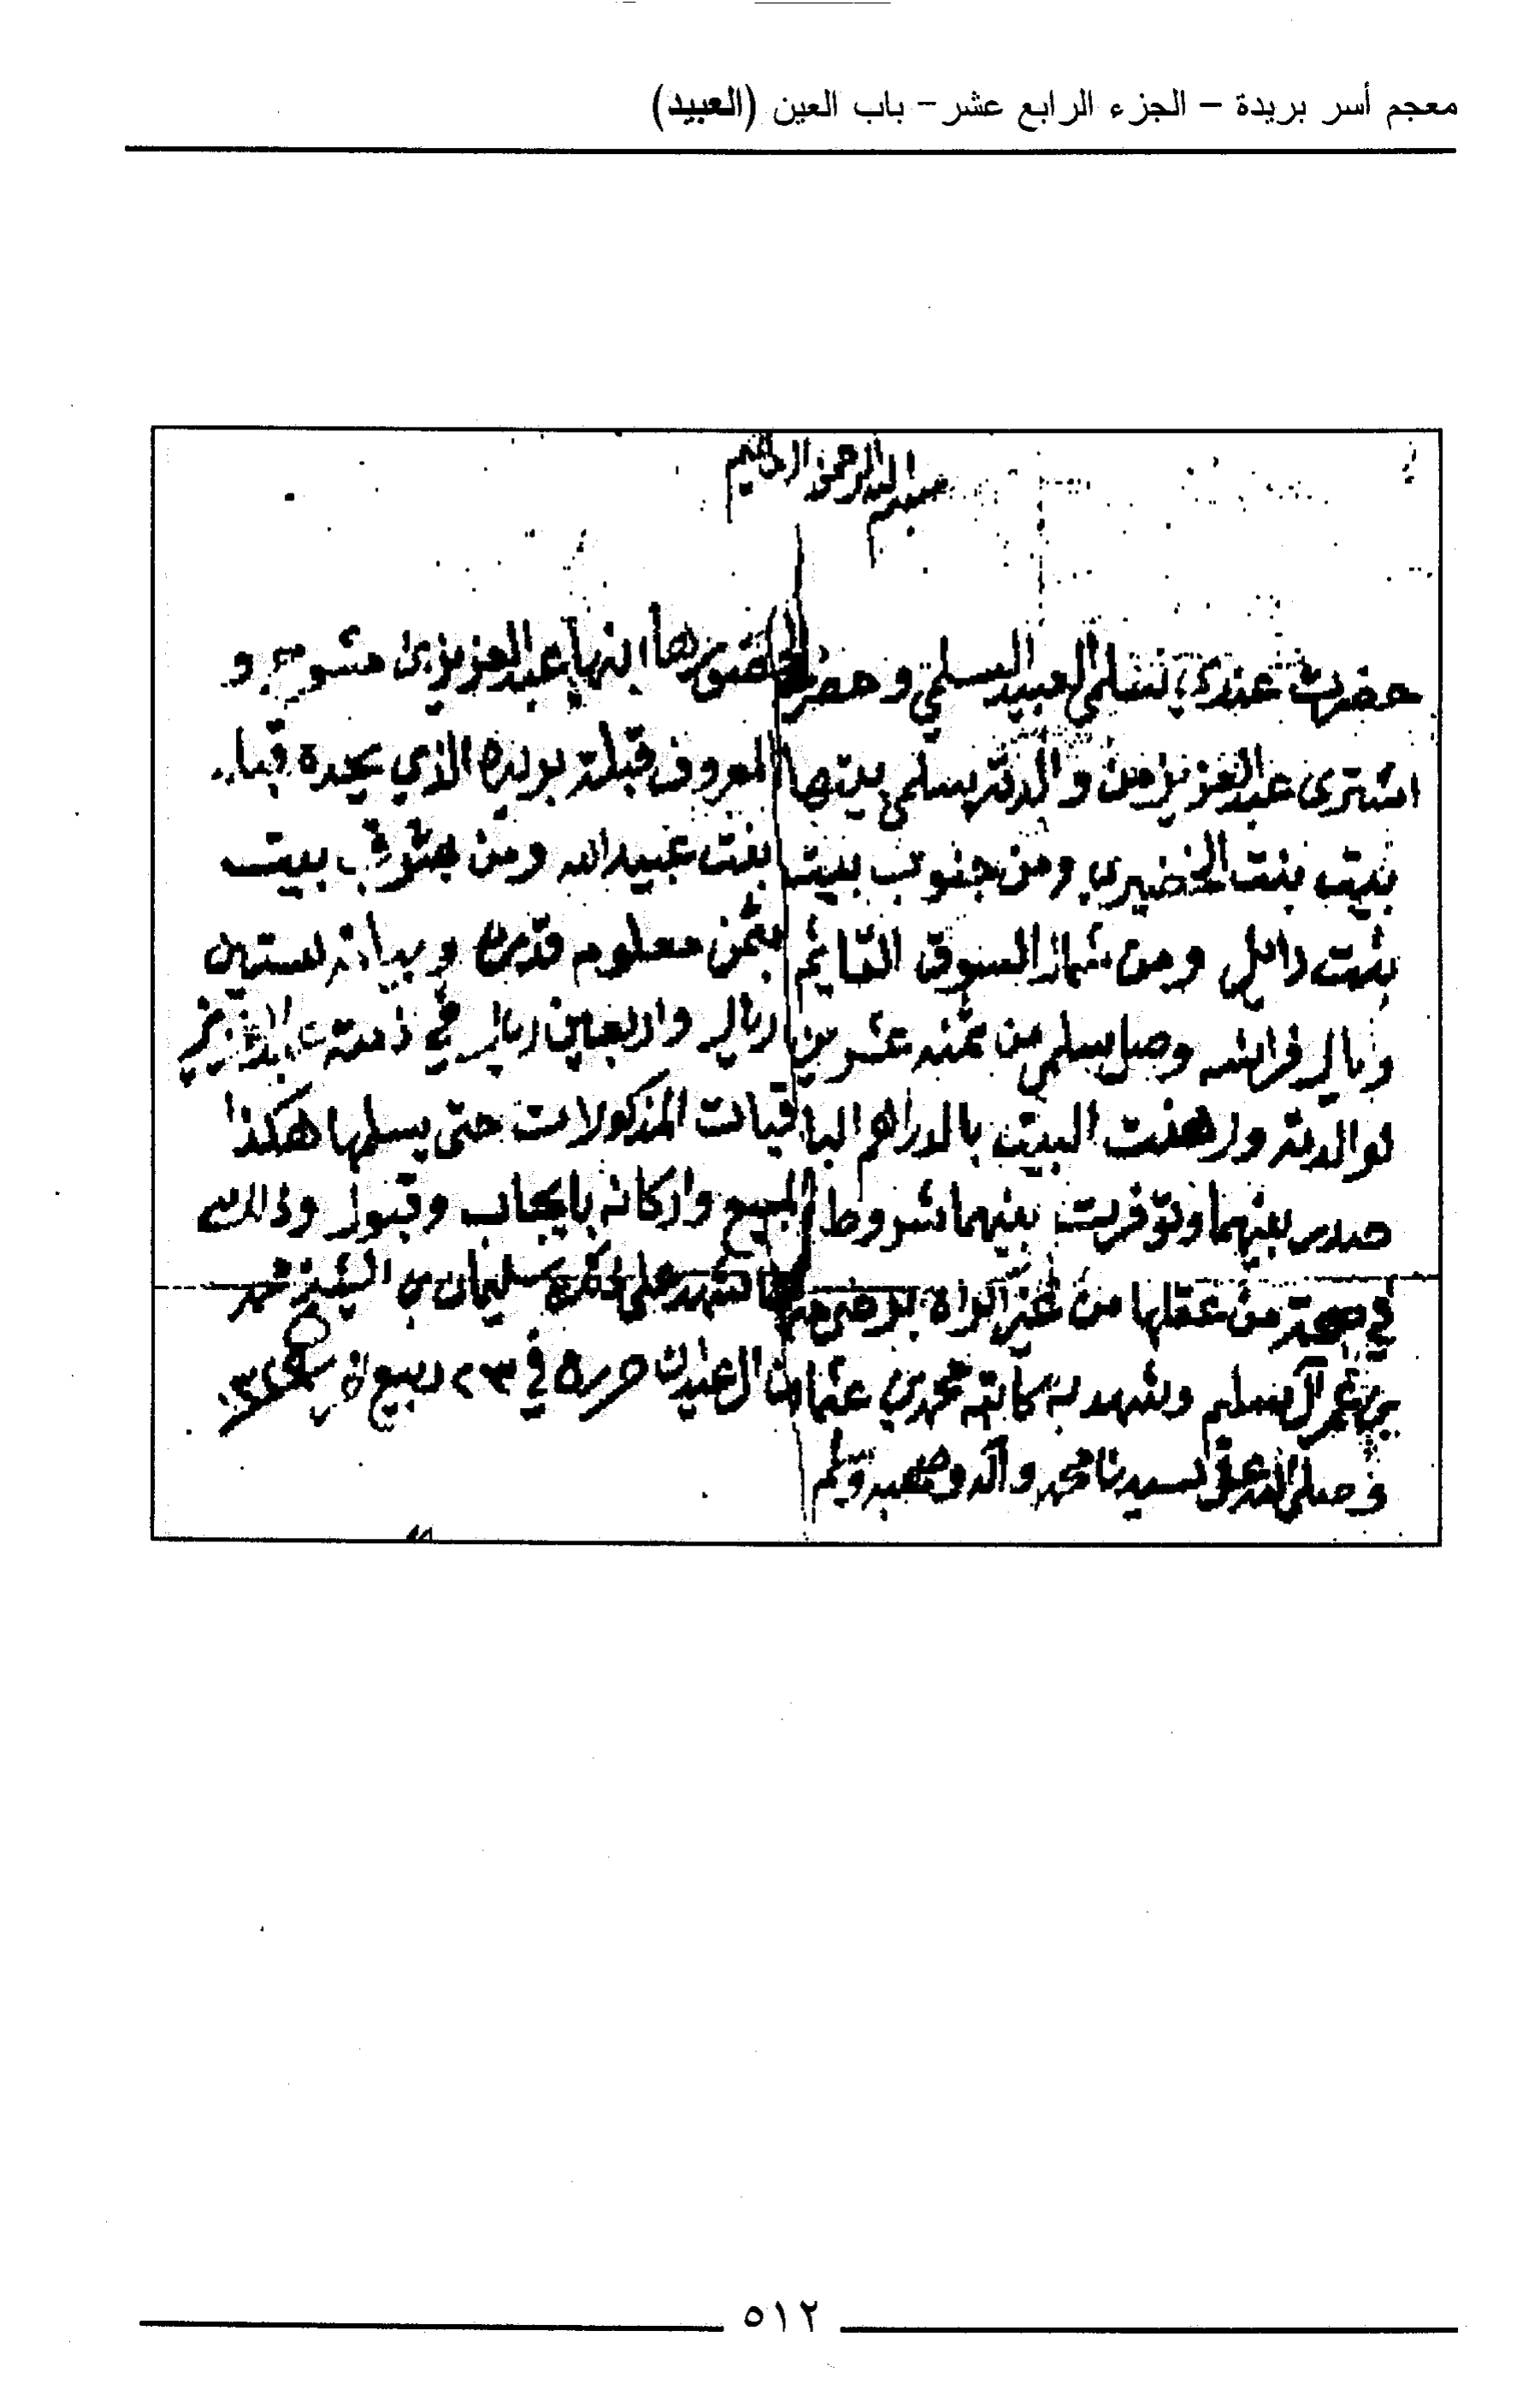 معجم أسر بريدة – الجزء الرابع عشر – باب العين (العبيد)
بسم الله الرحمن الرحيم
حضرت عندي سلمى العبيد السلمي وحضر لحضورها ابنها عبد العزيز بن مشوح و
اشترى عبد العزيز من والدته سلمى بيتها المعروف قبلة بريدة الذي يحده قبله
بيت بنت الخضيري ومن جنوب بيت بنت عبيد الله ومن شرق بيت
بنت دامل ومن شمال السوق القايم بثمن معلوم قدره وبيانه ستين
ريال فرانسه وصل سلمى من ثمنه عشرين اريال واربعين اريال في ذمة عبد العزيز
لوالدته وارهنت البيت بالدراهم الباقيات المذكولات حتى يسلمها هكذا
صدر بينهما وتوفرت بينهما شروط البيع واركانه بايجاب وقبول وذالك
في صحة من عقلها من غير اكراه برضى منها شهد على ذلك سليمان بن الشيخ محمد
بن عمر آل سليم وشهد به كاتبه محمدي عثمان العبدان حرره في ٢٣ ربيع
وصلى الله على سيدنا محمد وآله وصحبه وسلم
٥١٢